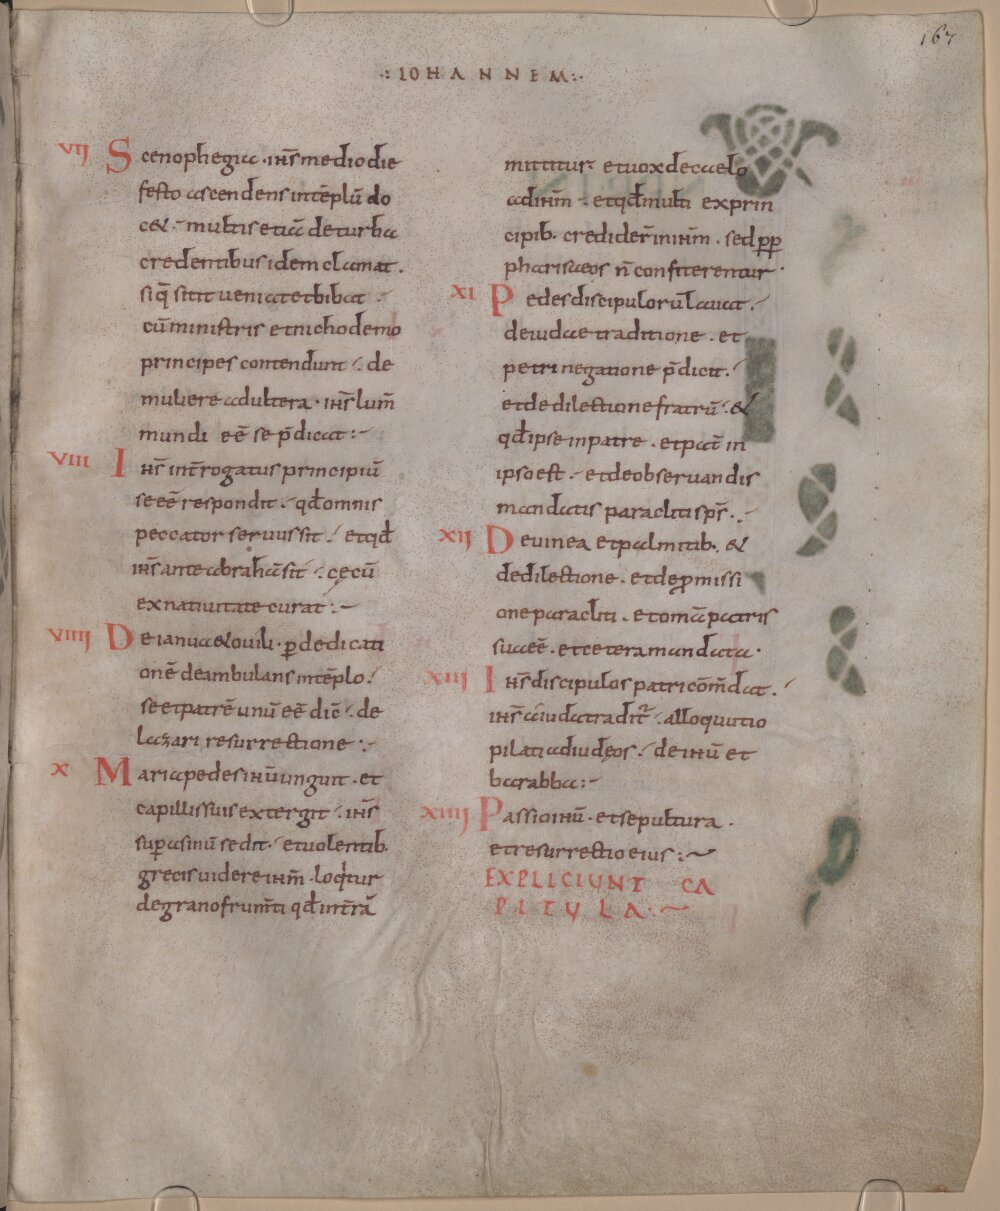 167
·:IOHANNEM:·
VIJ Scenophegia · ihs̄ medio die
festo ascendens in tēplū do
c& · multis etiā de turba
credentibus idem clamat .
si q̄ sitit veniat et bibat
cū ministris et nichodemo
principes contendunt · de
muliere adultera · ihs̄ lum̄
mundi eē se p̄dicat :-
VIII Ihs̄ int̄rogatus principiū
se eē respondit · qđ omnis
peccator servus sit · et qđ
ihs̄ ante abrahā sit · cęcū
ex nativitate curat :-
VIIIJ De ianua & ovili · p̱ dedicati
onē deambulans in tēplo ·
se et patrē unū eē dic̄ · de
lazari resurrectione :-
X Maria pedes ihū unguit · et
capillis suis extergit · ihs̄
sup̄ asinū sedit · et volentib·
grecis videre ihm̄ · loqitur
de grano frum̄ti qđ int̄rā
mittitur · et vox de caelo
ad ihm̄ · et qđ multi ex prin
cipib· credider̄ in ihm̄ · sed p̱p̱
pharisaeos n̄ confiterentur ·
XI Pedes discipulorū lavat ·
de iudae traditione · et
petri negatione p̄dicit ·
et de dilectione fratrū · &
qđ ipse in patre · et pat̄ in
ipso est · et de observandis
mandatis paracliti sps̄ ·
XIJ De vinea et palmitib· &
de dilectione · et de p̱missi
one paracliti · et omā patris
sua eē · et cetera mandata ·
XIII Ihs̄ discipulos patri com̄dat ·
ihs̄ a iuda tradit̄ · alloquutio
pilati ad iudęos · de ihū et
barabba :-
XIIIJ Passio ihū · et sepultura ·
et resurrectio eius :~
EXPLICIUNT CA
PITULA :~